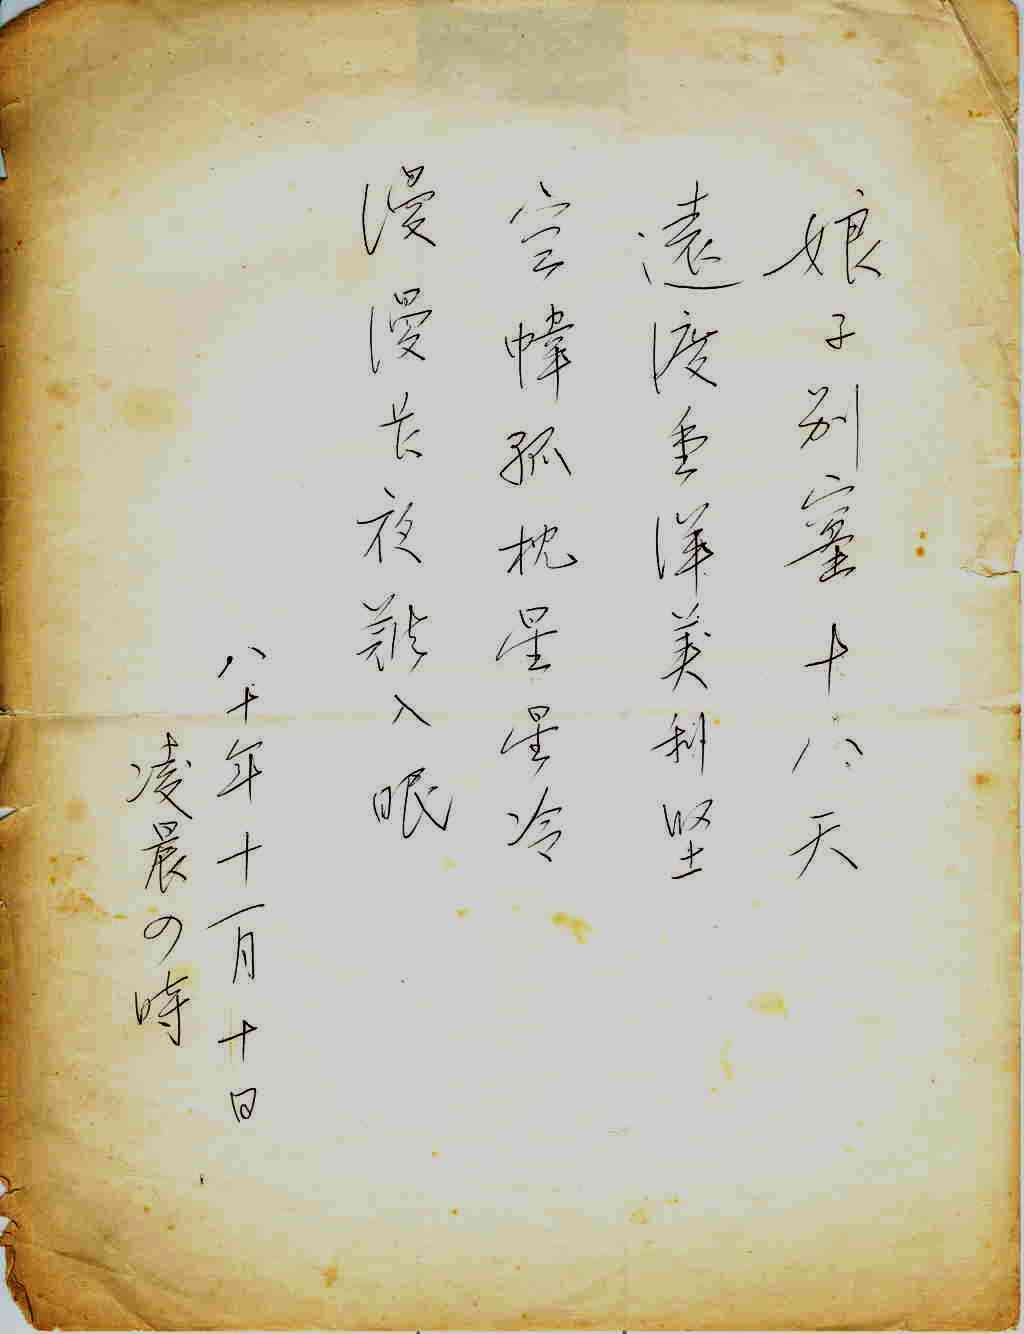 娘子別臺十八天
遠渡重洋美利堅
空幃孤枕星星冷
漫漫長夜難入眠
八十年十一月十日
凌晨四時